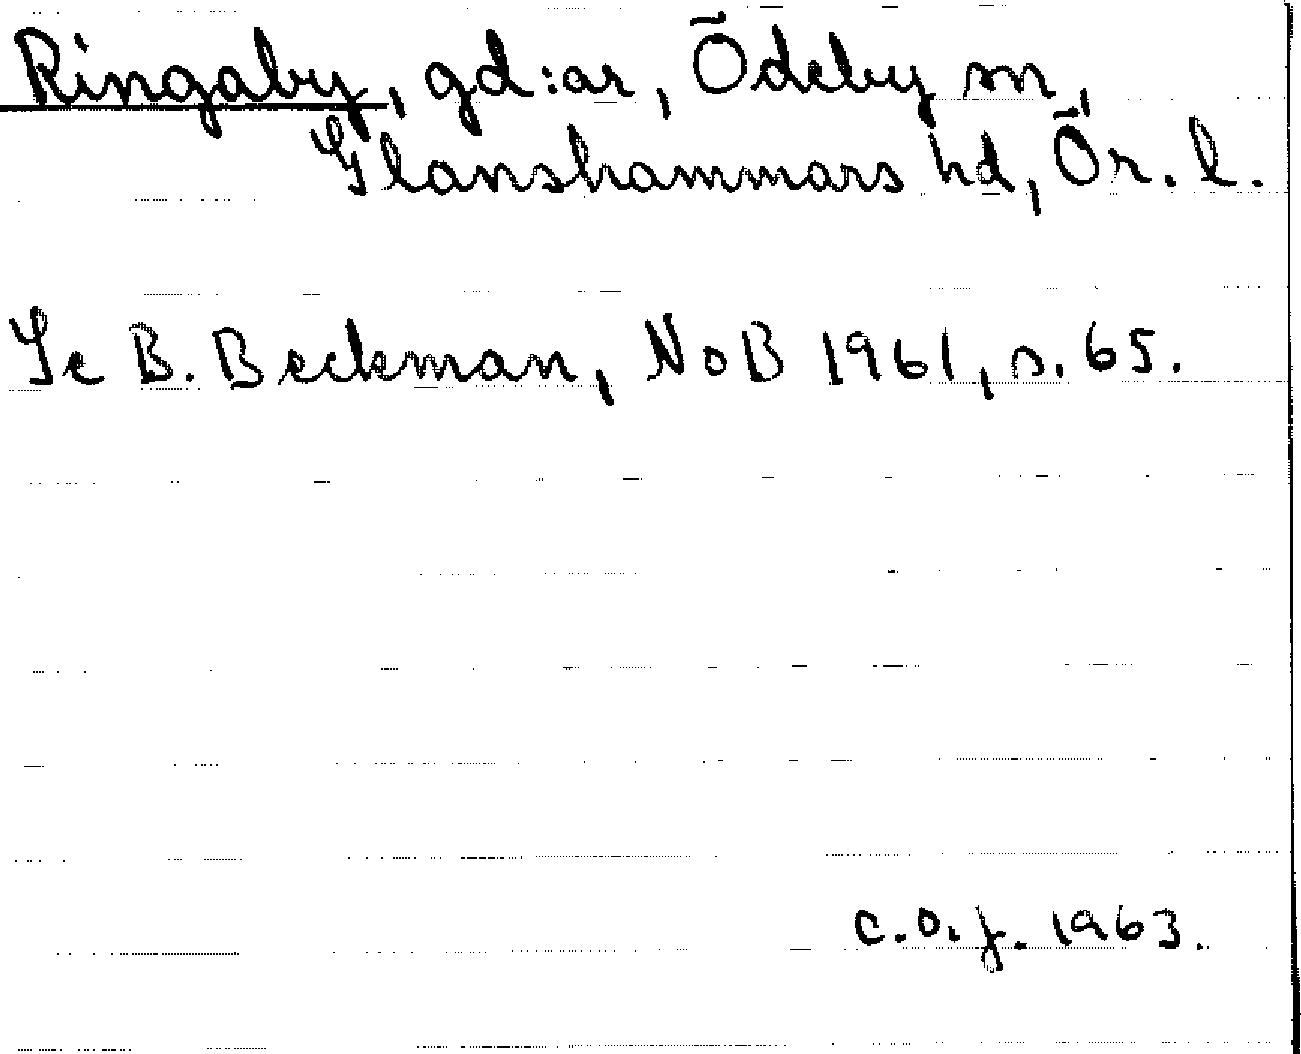 Ringaby, gd:ar, Ödeby sn,
Glanshammars hd, Ör. l.
Se B. Beckman, NoB 1961, s. 65.
C.O.J. 1963.